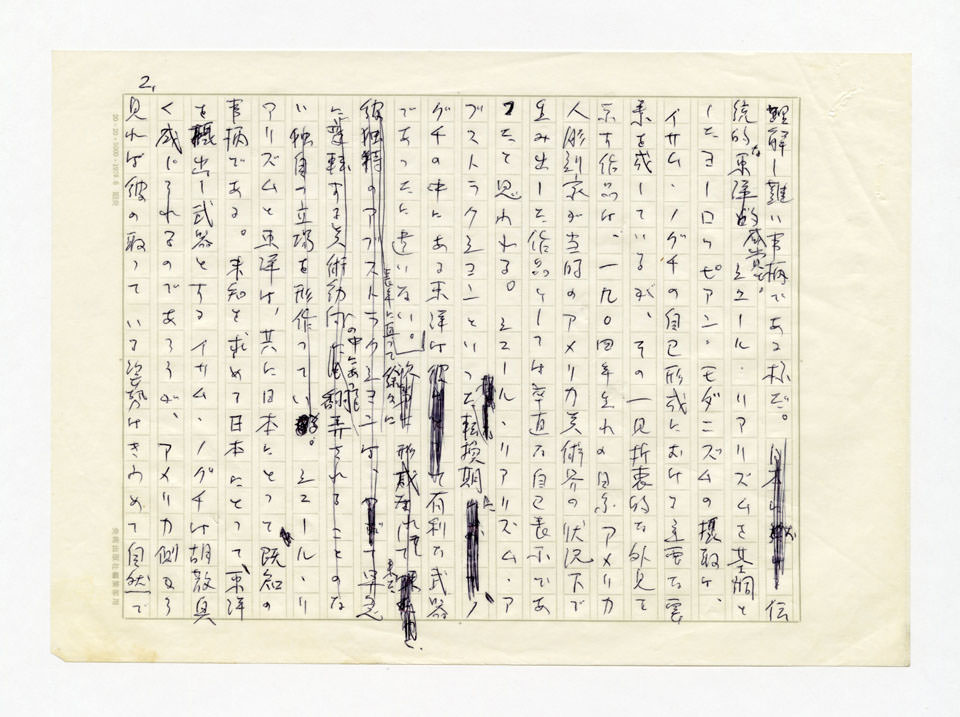 2.
理解し難い事柄である様だ。伝
統的な東洋的感覚、シュール・リアリズムを基調と
したヨーロッピアン・モダニズムの摂取は、
イサム・ノグチの自己形成における重要な要
素を成しているが、その一見折衷的な外見を
示す作品は、一九〇四年生れの日系アメリカ
人彫刻家が当時のアメリカ美術界の状況下で
生み出した作品としては率直な自己表示であ
ったと思われる。シュール・リアリズム・ア
ブストラクションといった転換期、ノ
グチの中にある東洋は有利な武器
であったに違いない。長年に亘って徐々に形成されて来た
彼独特のアブストラクションは、早急
に変転する美術動向の中にあって翻弄されることのな
い独自の立場を形作っている。シュール・リ
アリズムと東洋は、共に日本にとって既知の
事柄である。未知を求めて日本にとって、東洋
を摂出し武器とするイサム・ノグチは胡散臭
く感じられるのであろうが、アメリカ側から
見れば彼の取っている姿勢はきわめて自然で
20×20 1000